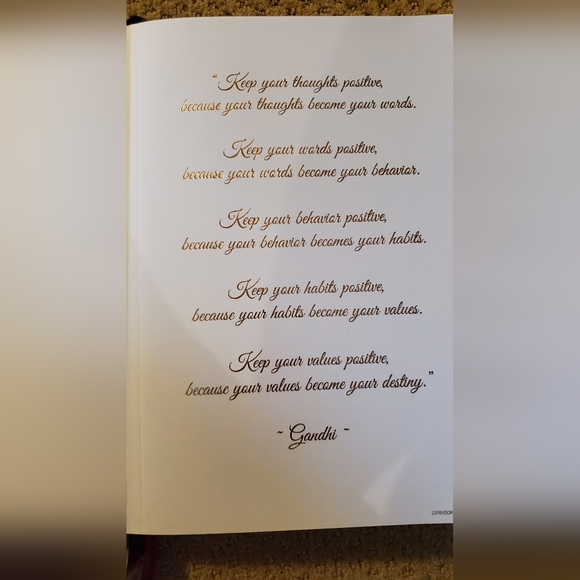 “Keep your thoughts positive,
because your thoughts become your words.
Keep your words positive,
because your words become your behavior.
Keep your behavior positive,
because your behavior becomes your habits.
Keep your habits positive,
because your habits become your values.
Keep your values positive,
because your values become your destiny.”
~ Gandhi ~
©FREEDOM